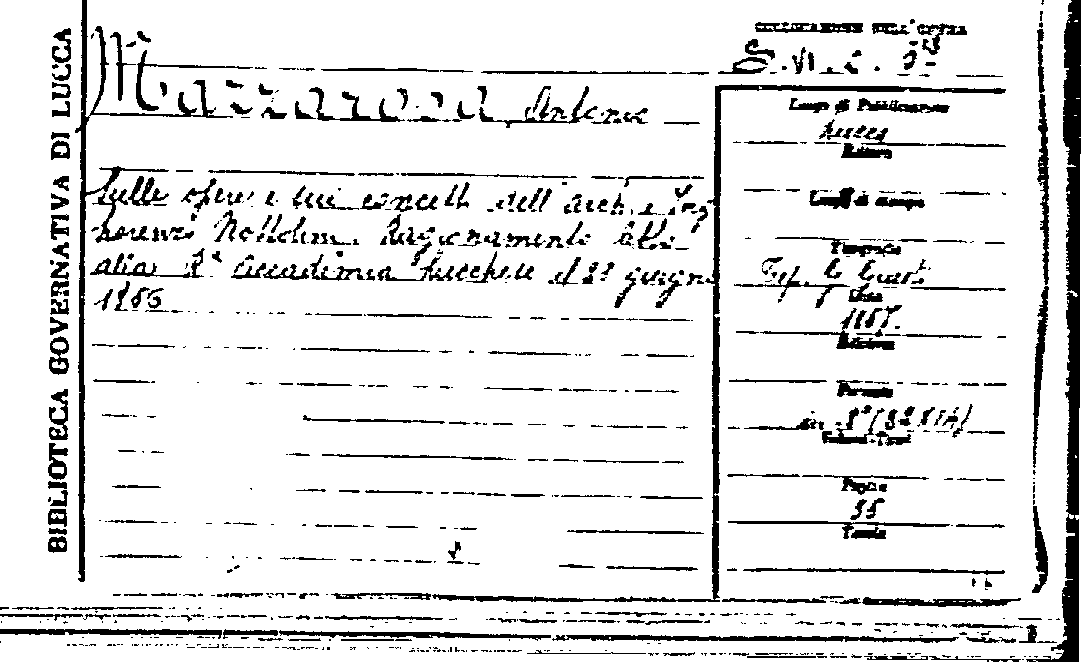 BIBLIOTECA GOVERNATIVA DI LUCCA
COLLOCAZIONE DELL'OPERA
Mazzarosa, Antonio
Luogo di Pubblicazione
Lucca
Editore
Sulle opere e sui concetti dell'arch. e Ing
Lorenzo Nottolini. Ragionamento letto
alla R.ª Accademia Lucchese il giugno
Luogo di stampa
Tipografia
Tip. G. Giusti
Data
Edizione
Formato
in 8°
Pagine
35
Tavole